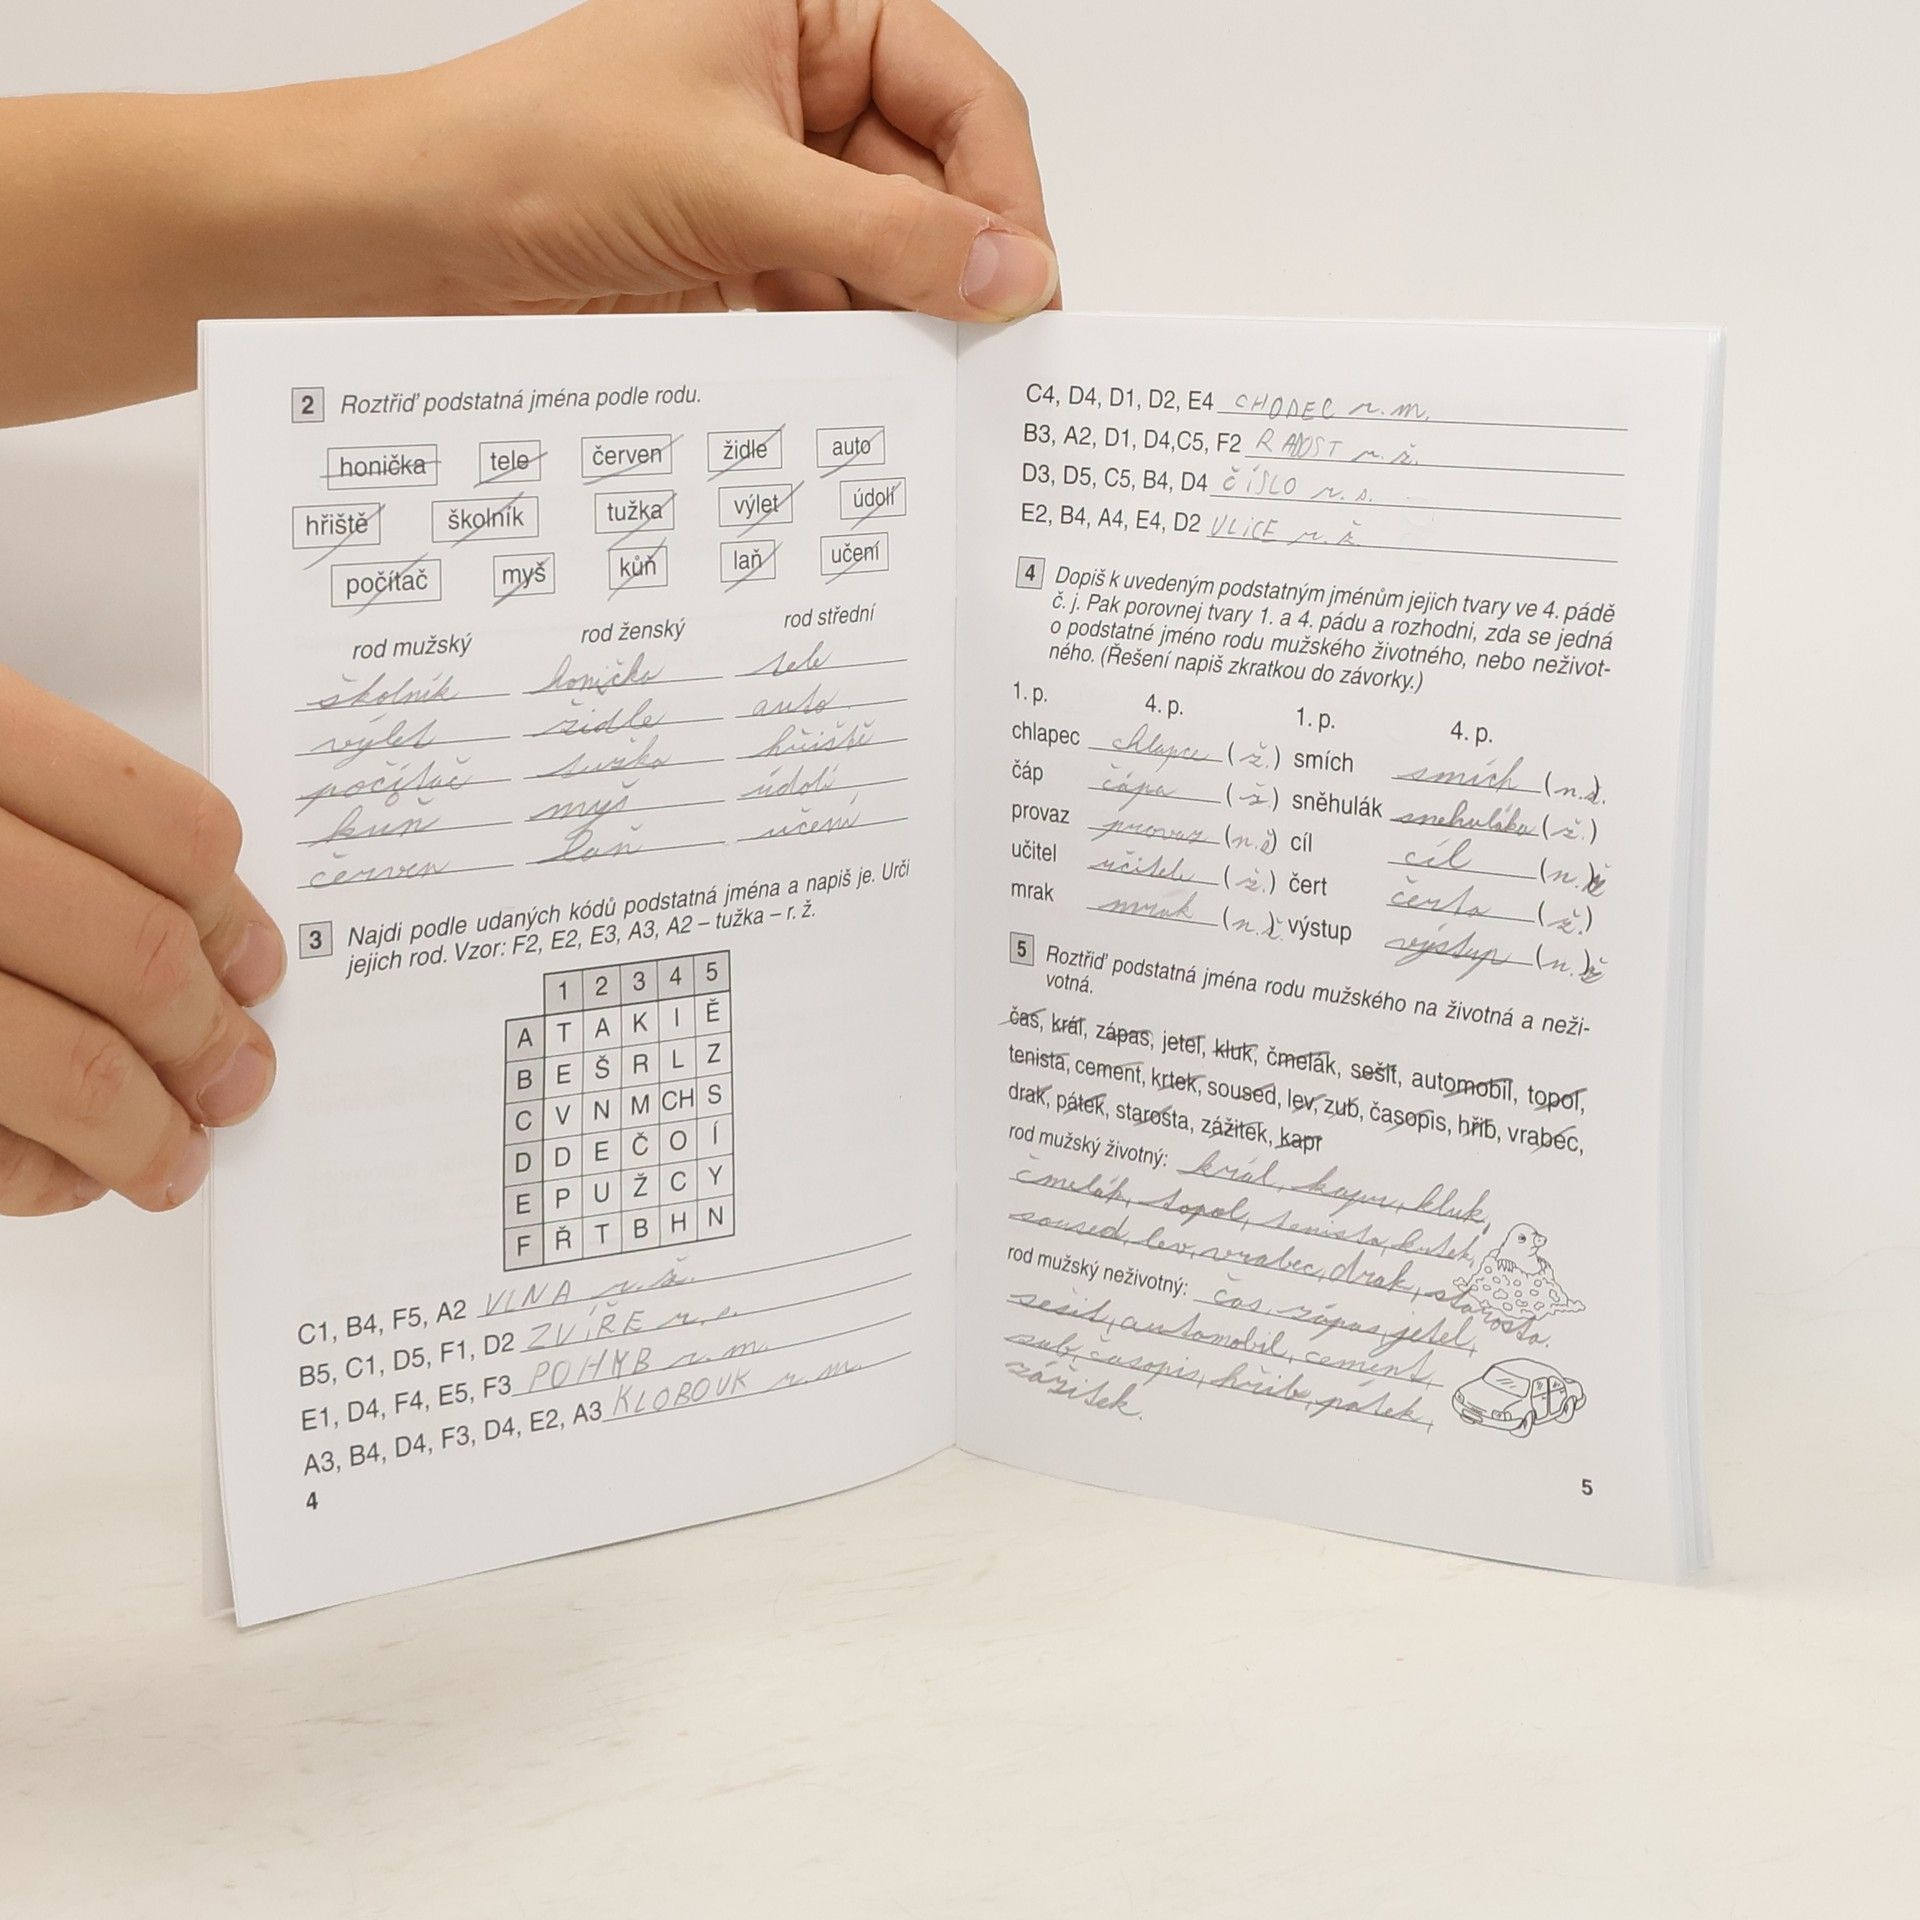 2 Roztřiď podstatná jména podle rodu.
honička tele červen židle auto
hřiště školník tužka výlet údolí
počítač myš kůň laň učení
rod mužský rod ženský rod střední
školník honička tele
výlet židle auto
počítač tužka hřiště
kůň myš údolí
červen laň učení
3 Najdi podle udaných kódů podstatná jména a napiš je. Urči
jejich rod. Vzor: F2, E2, E3, A3, A2 – tužka – r. ž.
1 2 3 4 5
A T A K I Ě
B E Š R L Z
C V N M CH S
D D E Č O Í
E P U Ž C Y
F Ř T B H N
C1, B4, F5, A2 VLNA r. ž.
B5, C1, D5, F1, D2 ZVÍŘE r. s.
E1, D4, F4, E5, F3 POHYB r. m.
A3, B4, D4, F3, D4, E2, A3 KLOBOUK r. m.
4
C4, D4, D1, D2, E4 CHODEC r. m.
B3, A2, D1, D4,C5, F2 RADOST r. ž.
D3, D5, C5, B4, D4 ČÍSLO r. s.
E2, B4, A4, E4, D2 ULICE r. ž.
4 Dopiš k uvedeným podstatným jménům jejich tvary ve 4. pádě
č. j. Pak porovnej tvary 1. a 4. pádu a rozhodni, zda se jedná
o podstatné jméno rodu mužského životného, nebo neživot-
ného. (Řešení napiš zkratkou do závorky.)
1. p. 4. p. 1. p. 4. p.
chlapec chlapce (ž.) smích smích (n.ž.)
čáp čápa (ž.) sněhulák snehuláka (ž.)
provaz provaz (n.ž) cíl cíl (n.)ž
učitel učitele (ž.) čert čerta (ž.)
mrak mrak (n.ž.) výstup výstup (n.)ž
5 Roztřiď podstatná jména rodu mužského na životná a neži-
votná.
čas, král, zápas, jetel, kluk, čmelák, sešit, automobil, topol,
tenista, cement, krtek, soused, lev, zub, časopis, hřib, vrabec,
drak, pátek, starosta, zážitek, kapr
rod mužský životný: král, kapr, kluk,
čmelák, topol, tenista, krtek,
soused, lev, vrabec, drak, starosta.
rod mužský neživotný: čas, zápas, jetel,
sešit, automobil, cement,
zub, časopis, hřib, pátek,
zážitek.
5